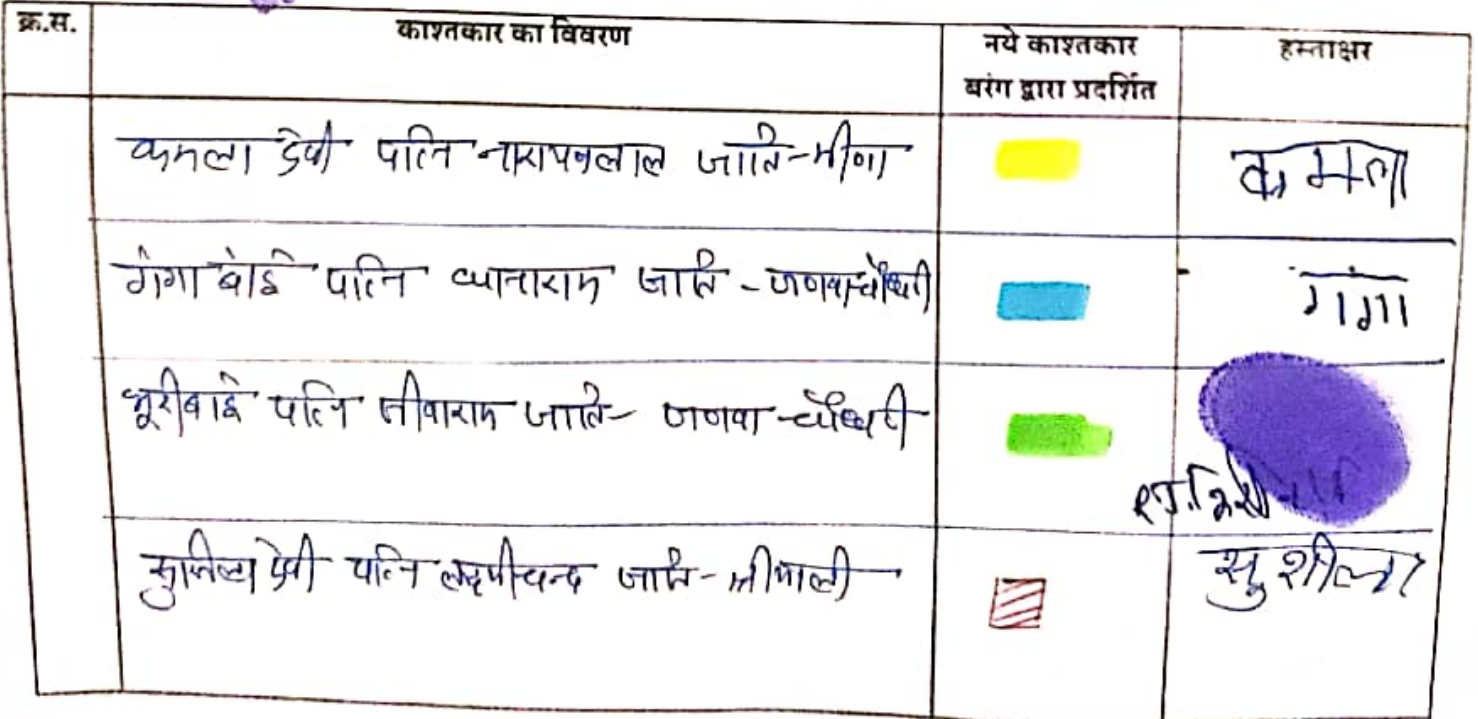 क्र.स. काश्तकार का विवरण नये काश्तकार हस्ताक्षर
बरंग द्वारा प्रदर्शित
कमला देवी पत्नि नारायणलाल जाति-मीणा कमला
गंगा बाई पत्नि जाति - जणवा चौधरी गंगा
भूरीबाई पत्नि जीवाराम जाति- जणवा -चौधरी
सुशिला देवी पत्नि लक्ष्मीचन्द जाति- श्रीमाली सुशीला